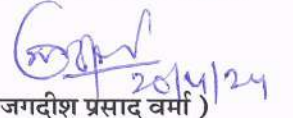 20/4/24
जगदीश प्रसाद वर्मा )